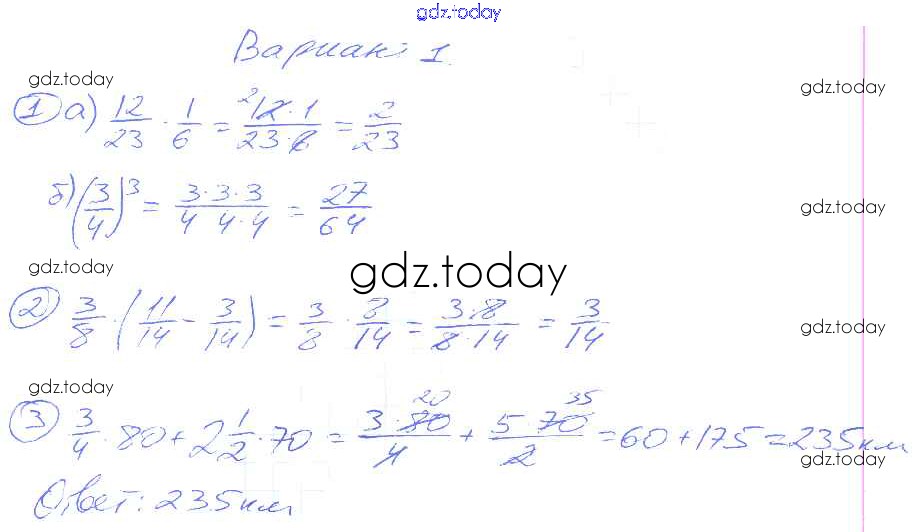 gdz.today
Вариант 1
gdz.today
gdz.today
① а) 12/23 · 1/6 = 12·1/23·6 = 2/23
б) (3/4)³ = 3·3·3/4 4·4 = 27/64
gdz.today
gdz.today
gdz.today
② 3/8 · (11/14 - 3/14) = 3/8 · 8/14 = 3·8/8·14 = 3/14
gdz.today
gdz.today
③ 3/4 · 80 + 2 1/2 · 70 = 3·80/4 + 5·70/2 = 60 + 175 = 235 км
gdz.today
Ответ: 235 км